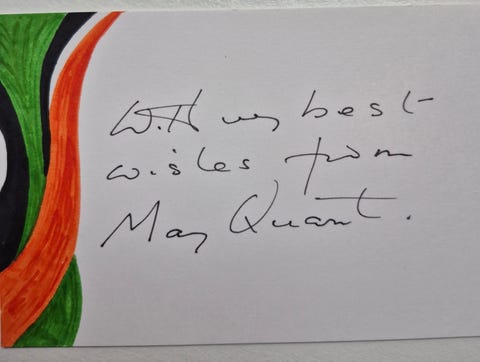 With my best
wishes from
Mary Quant.